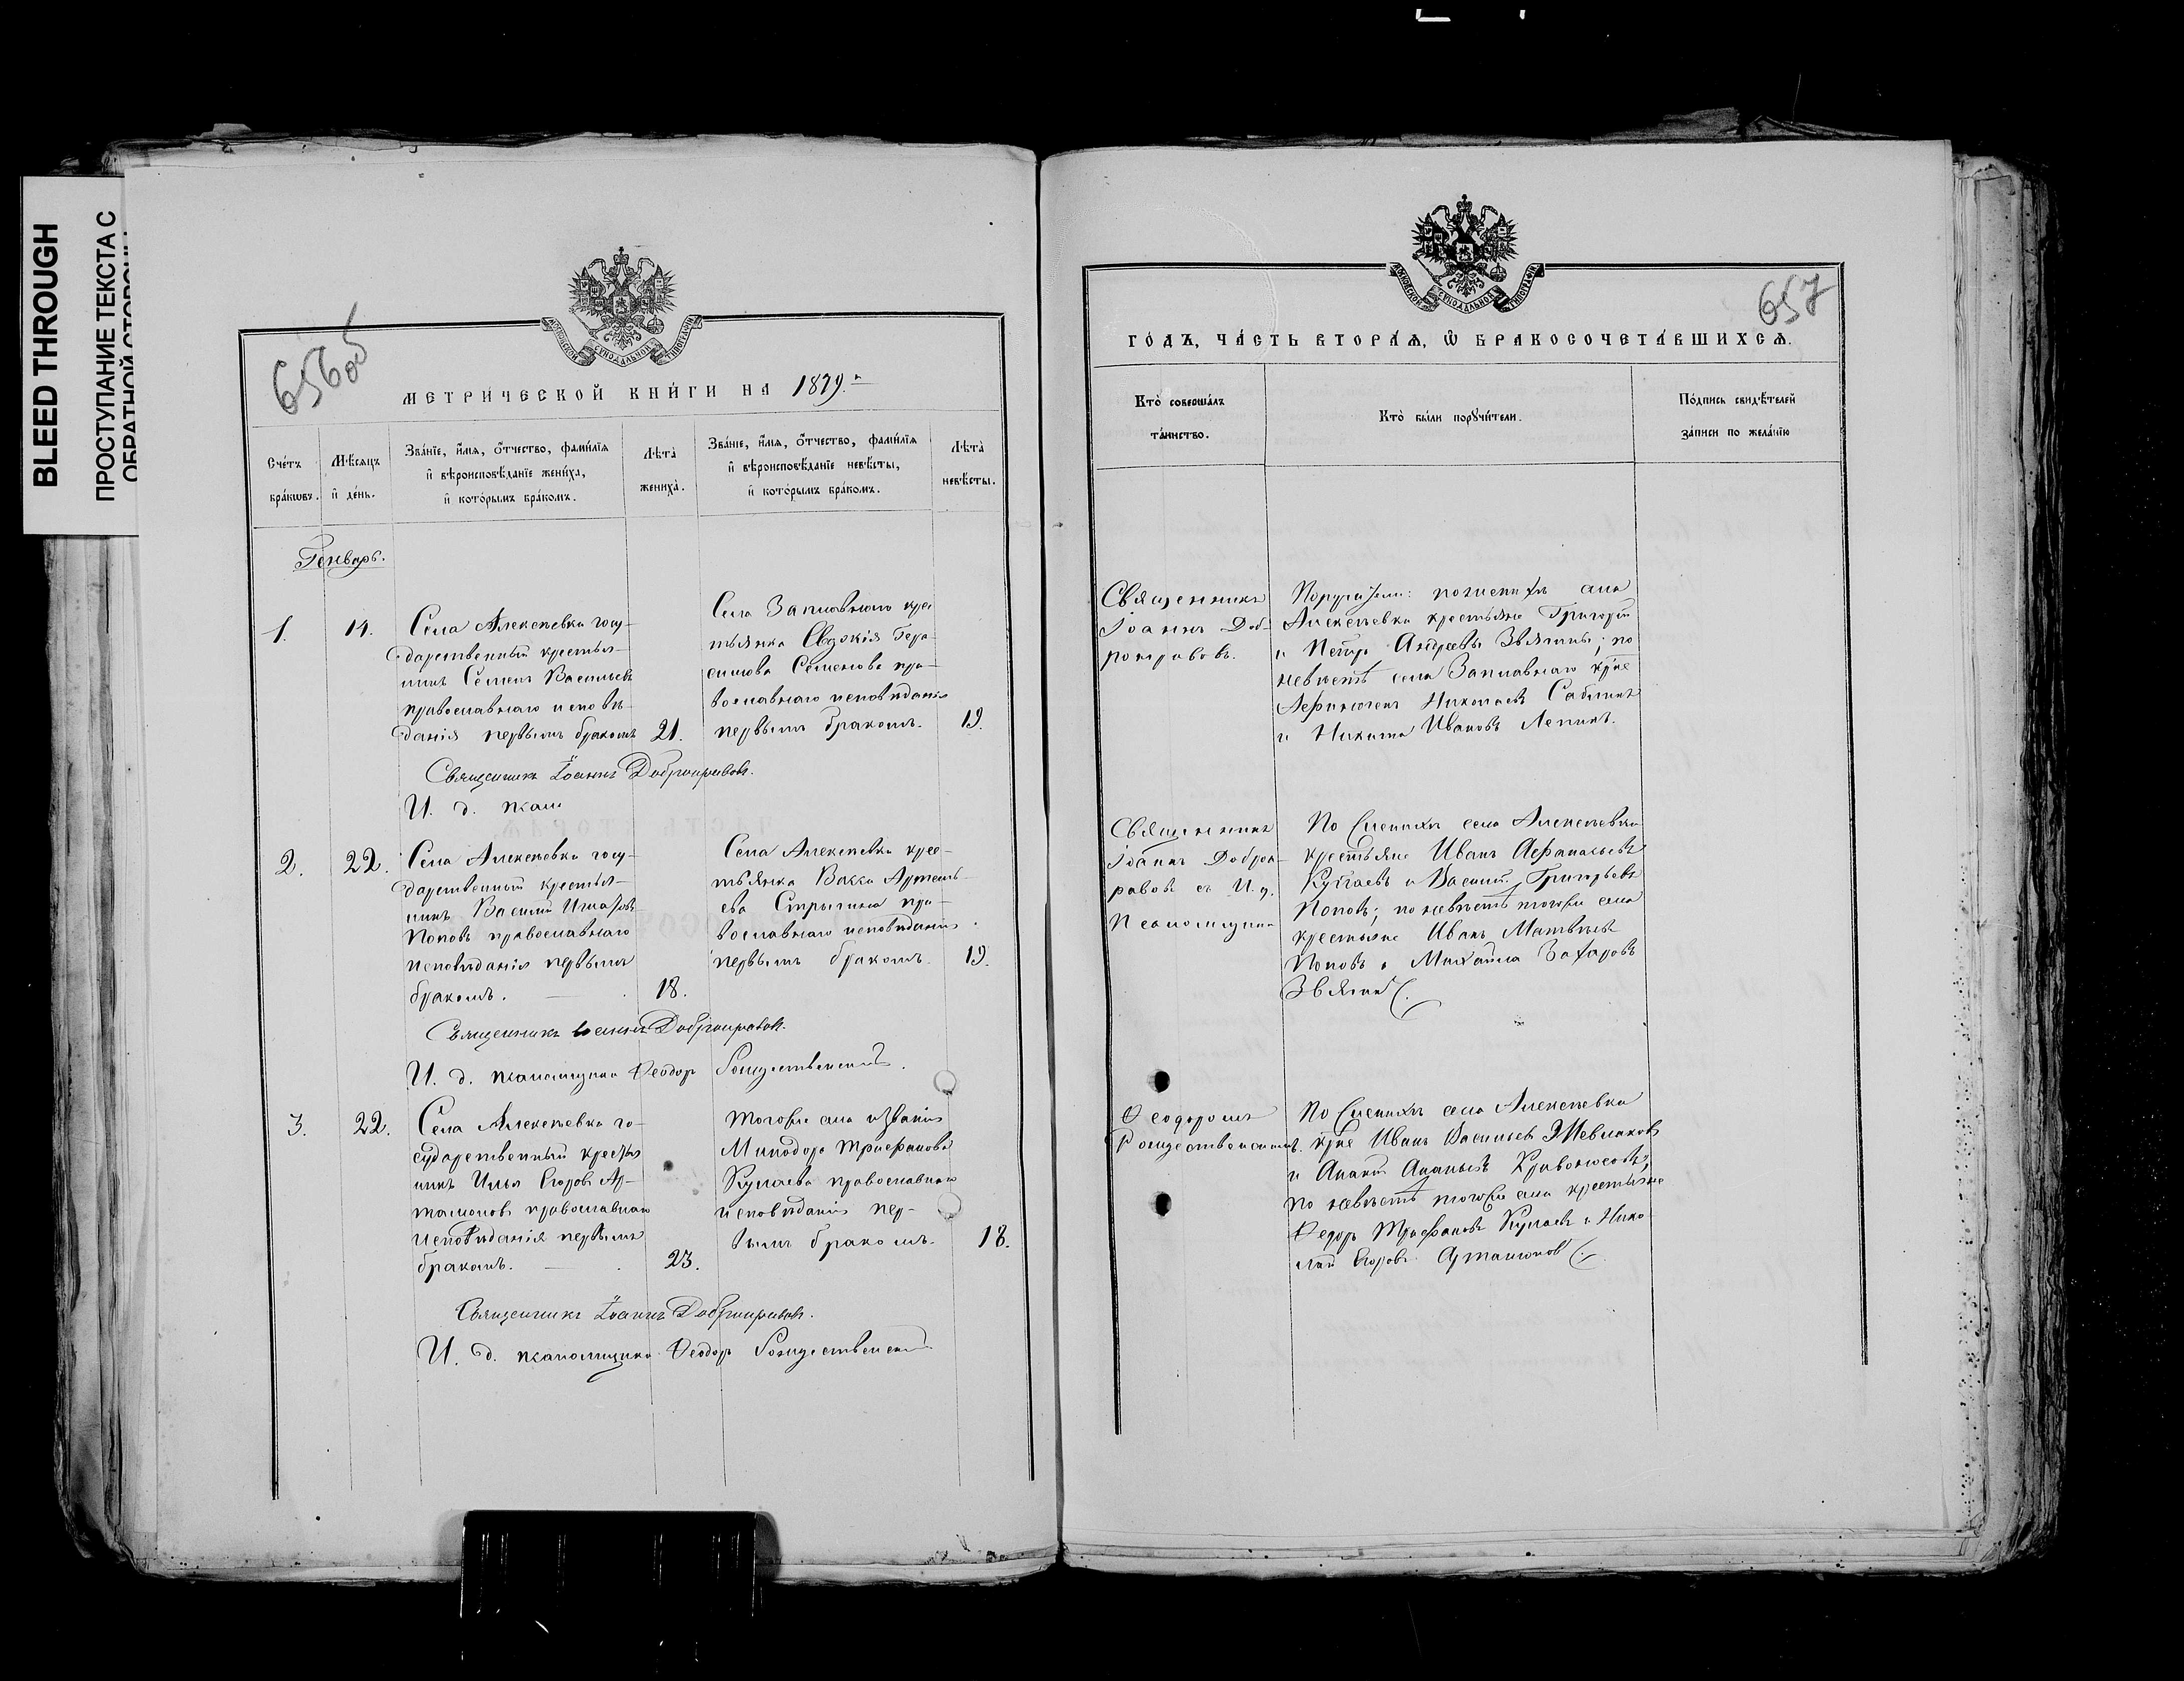 BLEED THROUGH
ПРОСТУПАНИЕ ТЕКСТА С
ОБРАТНОЙ СТОРОНЫ
656об
МОСКОВСКОЙ СѴНОДАЛЬНОЙ ТИПОГРАФІИ
МЕТРИ́ЧЕСКОЙ КНИ́ГИ НА 1879.й
Сче́тъ бра́ковъ.
Мѣ́сяцъ и҆ де́нь.
Зва́нїе, и҆́мѧ, ѻ҆́тчество, фами́лїѧ
и҆ вѣроисповѣ́данїе жениха̀,
и҆ кото́рымъ бра́комъ.
Лѣта̀ жениха̀.
Зва́нїе, и҆́мѧ, ѻ҆́тчество, фами́лїѧ
и҆ вѣроисповѣ́данїе невѣ́сты,
и҆ кото́рымъ бра́комъ.
Лѣта̀ невѣ́сты.
Генварь.
1.
14.
Села Алексѣевки госу-
дарственный крестья-
нинъ Семенъ Васильевъ
православнаго исповѣ-
данія первымъ бракомъ
21.
Села Заплавнаго крес
тьянка Евдокія Гера-
симова Семенова пра-
вославнаго исповѣданія
первымъ бракомъ.
19.
Священникъ Іоаннъ Добронравовъ.
И. д. псалм
2.
22.
Села Алексѣевки госу-
дарственный крестья-
нинъ Василій Игнатовъ
Поповъ православнаго
исповѣданія первымъ
бракомъ.
18.
Села Алексѣевки крес-
тьянка Васса Артемь-
ева Стрыгина пра-
вославнаго исповѣданія
первымъ бракомъ.
19.
Священникъ Іоаннъ Добронравовъ.
И. д. псаломщика Феодоръ Рождественскій.
3.
22.
Села Алексѣевки го-
сударственный крестья
нинъ Илья Егоровъ Ар-
тамоновъ православнаго
исповѣданія первымъ
бракомъ.
23.
Тогоже села и званія
Минодора Трифанова
Купаева православнаго
исповѣданія пер-
вымъ бракомъ.
18.
Священникъ Іоаннъ Добронравовъ.
И. д. псаломщика Феодоръ Рождественскій
657
МОСКОВСКОЙ СѴНОДАЛЬНОЙ ТИПОГРАФІИ
ГО́ДЪ, ЧА́СТЬ ВТОРА́Ѧ, Ѽ БРАКОСОЧЕТА́ВШИХСѦ.
Кто̀ соверша́лъ
та́инство.
Кто̀ бы́ли порꙋчи́тели.
По́дпись свидѣ́телей
за́писи по жела́нїю
Священникъ
Іоаннъ Доб-
ронравовъ.
Поручители: по женихѣ села
Алексѣевки крестьяне Григорій
и Петръ Андреевы Звягины; по
невѣстѣ села Заплавнаго кр͞не
Афиногенъ Николаевъ Саблинъ
и Никита Ивановъ Лепинъ.
Священникъ
Іоаннъ Доброн-
равовъ съ И. д.
Псаломщика
По женихѣ села Алексѣевки
крестьяне Иванъ Афанасьевъ
Купаевъ и Василій Григорьевъ
Поповъ; по невѣстѣ тогоже села
крестьяне Иванъ Матвѣевъ
Поповъ и Михайла Захаровъ
Звягинъ
Феодоромъ
Рождественскимъ.
По женихѣ села Алексѣевки
кр͞не Иванъ Васильевъ Шевлаковъ
и Ананій Ананьевъ Кривоносовъ;
по невѣстѣ тогоже села крестьяне
Федоръ Трифановъ Купаевъ и Нико-
лай Егоровъ Артамоновъ